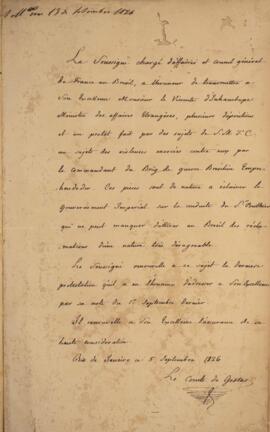 Le Soussigné chargé d'affaires et consul général
de France au Brésil, a l'honneur de transmettre à
Son Excellence Monsieur le Vicomte d'Inhambupe
Ministre des affaires Etrangères, plusieurs dépositions
et un protêt fait par des sujets de S. M. T. C.
au sujet des violences exercées contre eux par
le commandant du Brig de guerre Brésilien Empre-
hendedor. Ces pièces sont de nature à éclairer le
Gouvernement Impérial sur la conduite de
qui ne peut manquer d'attirer au Brésil des récla-
mations d'une nature très désagréable.
Le Soussigné renouvelle à ce sujet la dernière
protestation qu'il a eu l'honneur d'adresser à Son Excellence
par sa note du 1er Septembre dernier
Il renouvelle à Son Excellence l'assurance de sa
haute considération.
Rio de Janeiro ce 5 Septembre 1826
Le Comte de Gestas